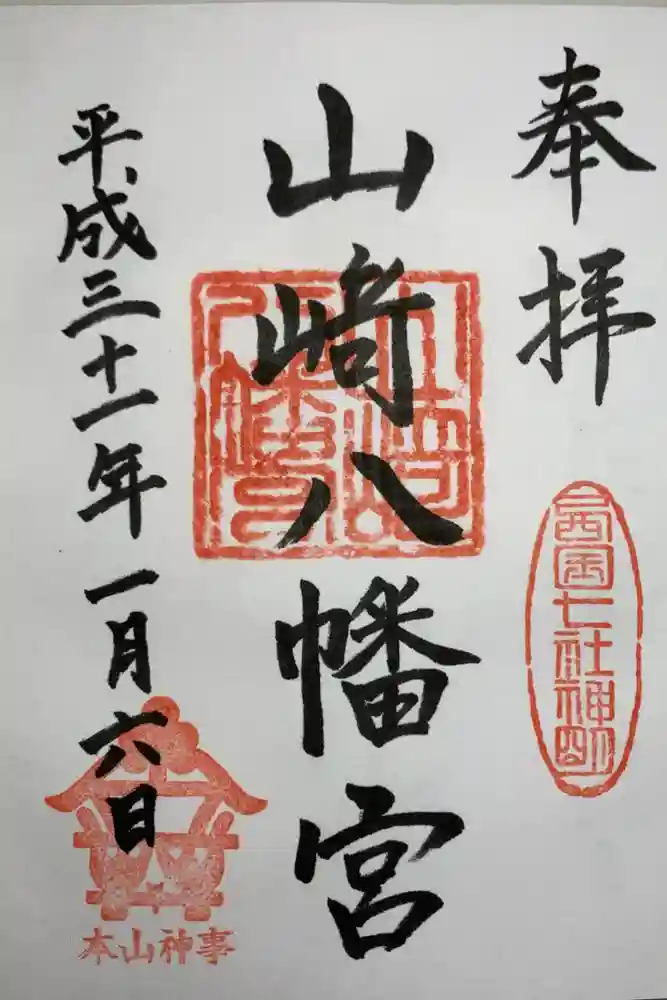 奉拝
周南七社神明
山崎八幡宮
平成三十一年一月六日
本山神事